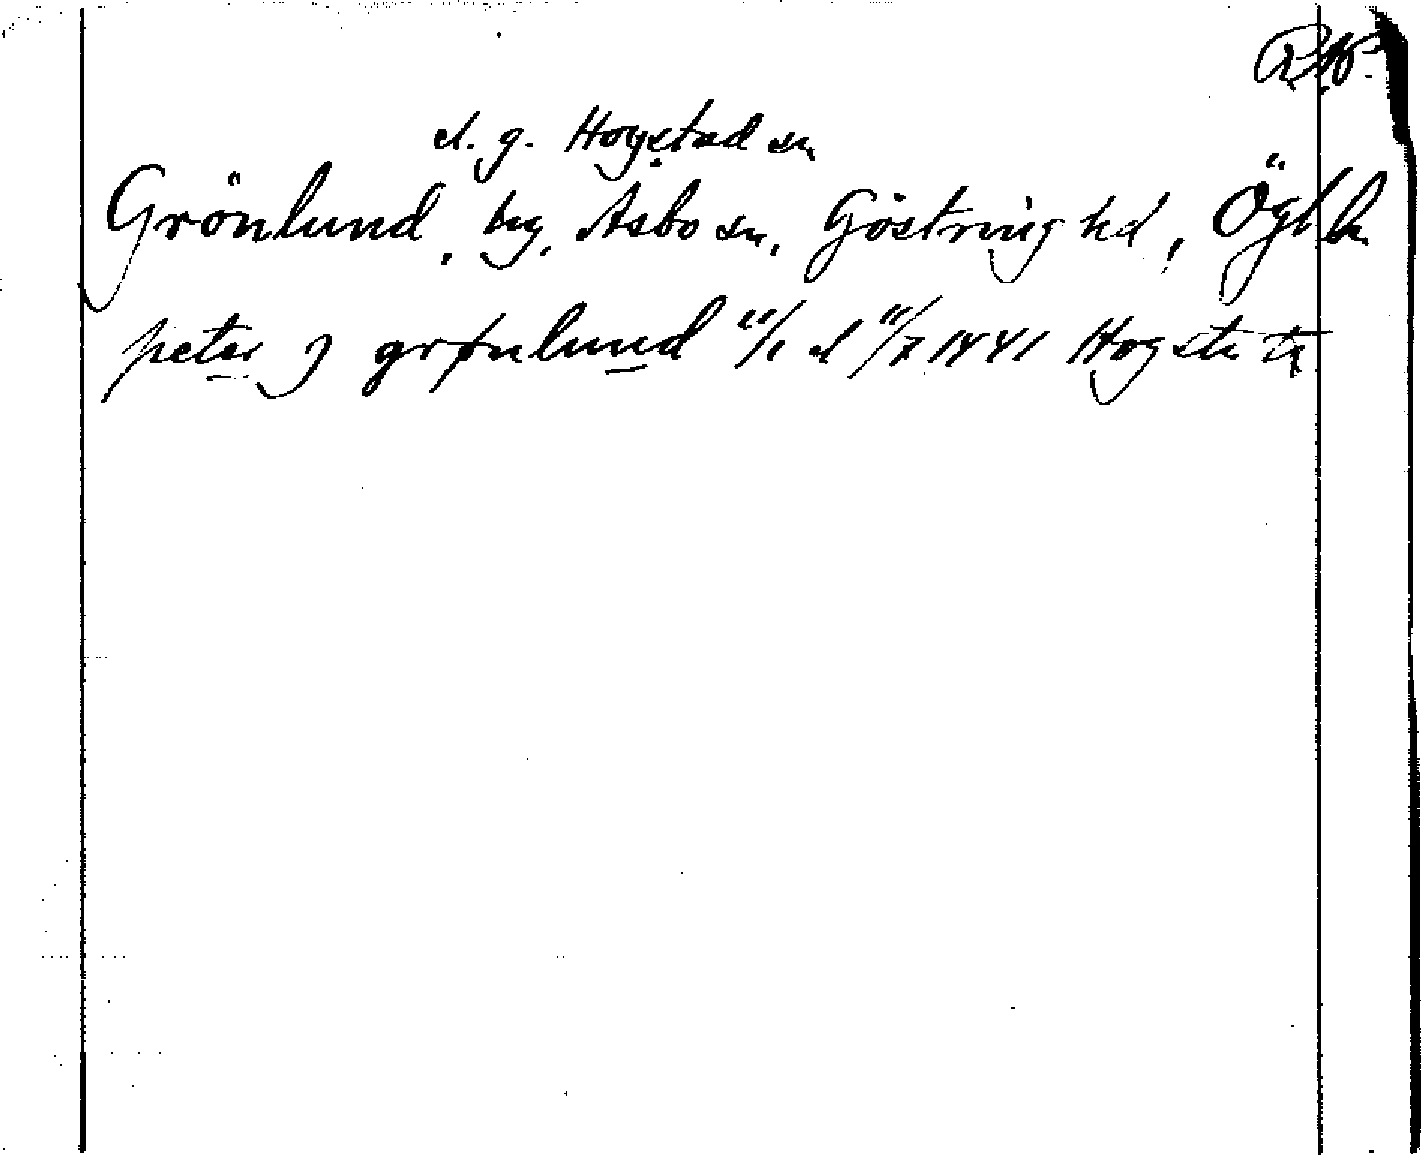 el. g. Hogstad sn
Grönlund, by, Asbo sn, Göstring hd, Ögl
peter j grønlund 11/1 1841 Hogsta